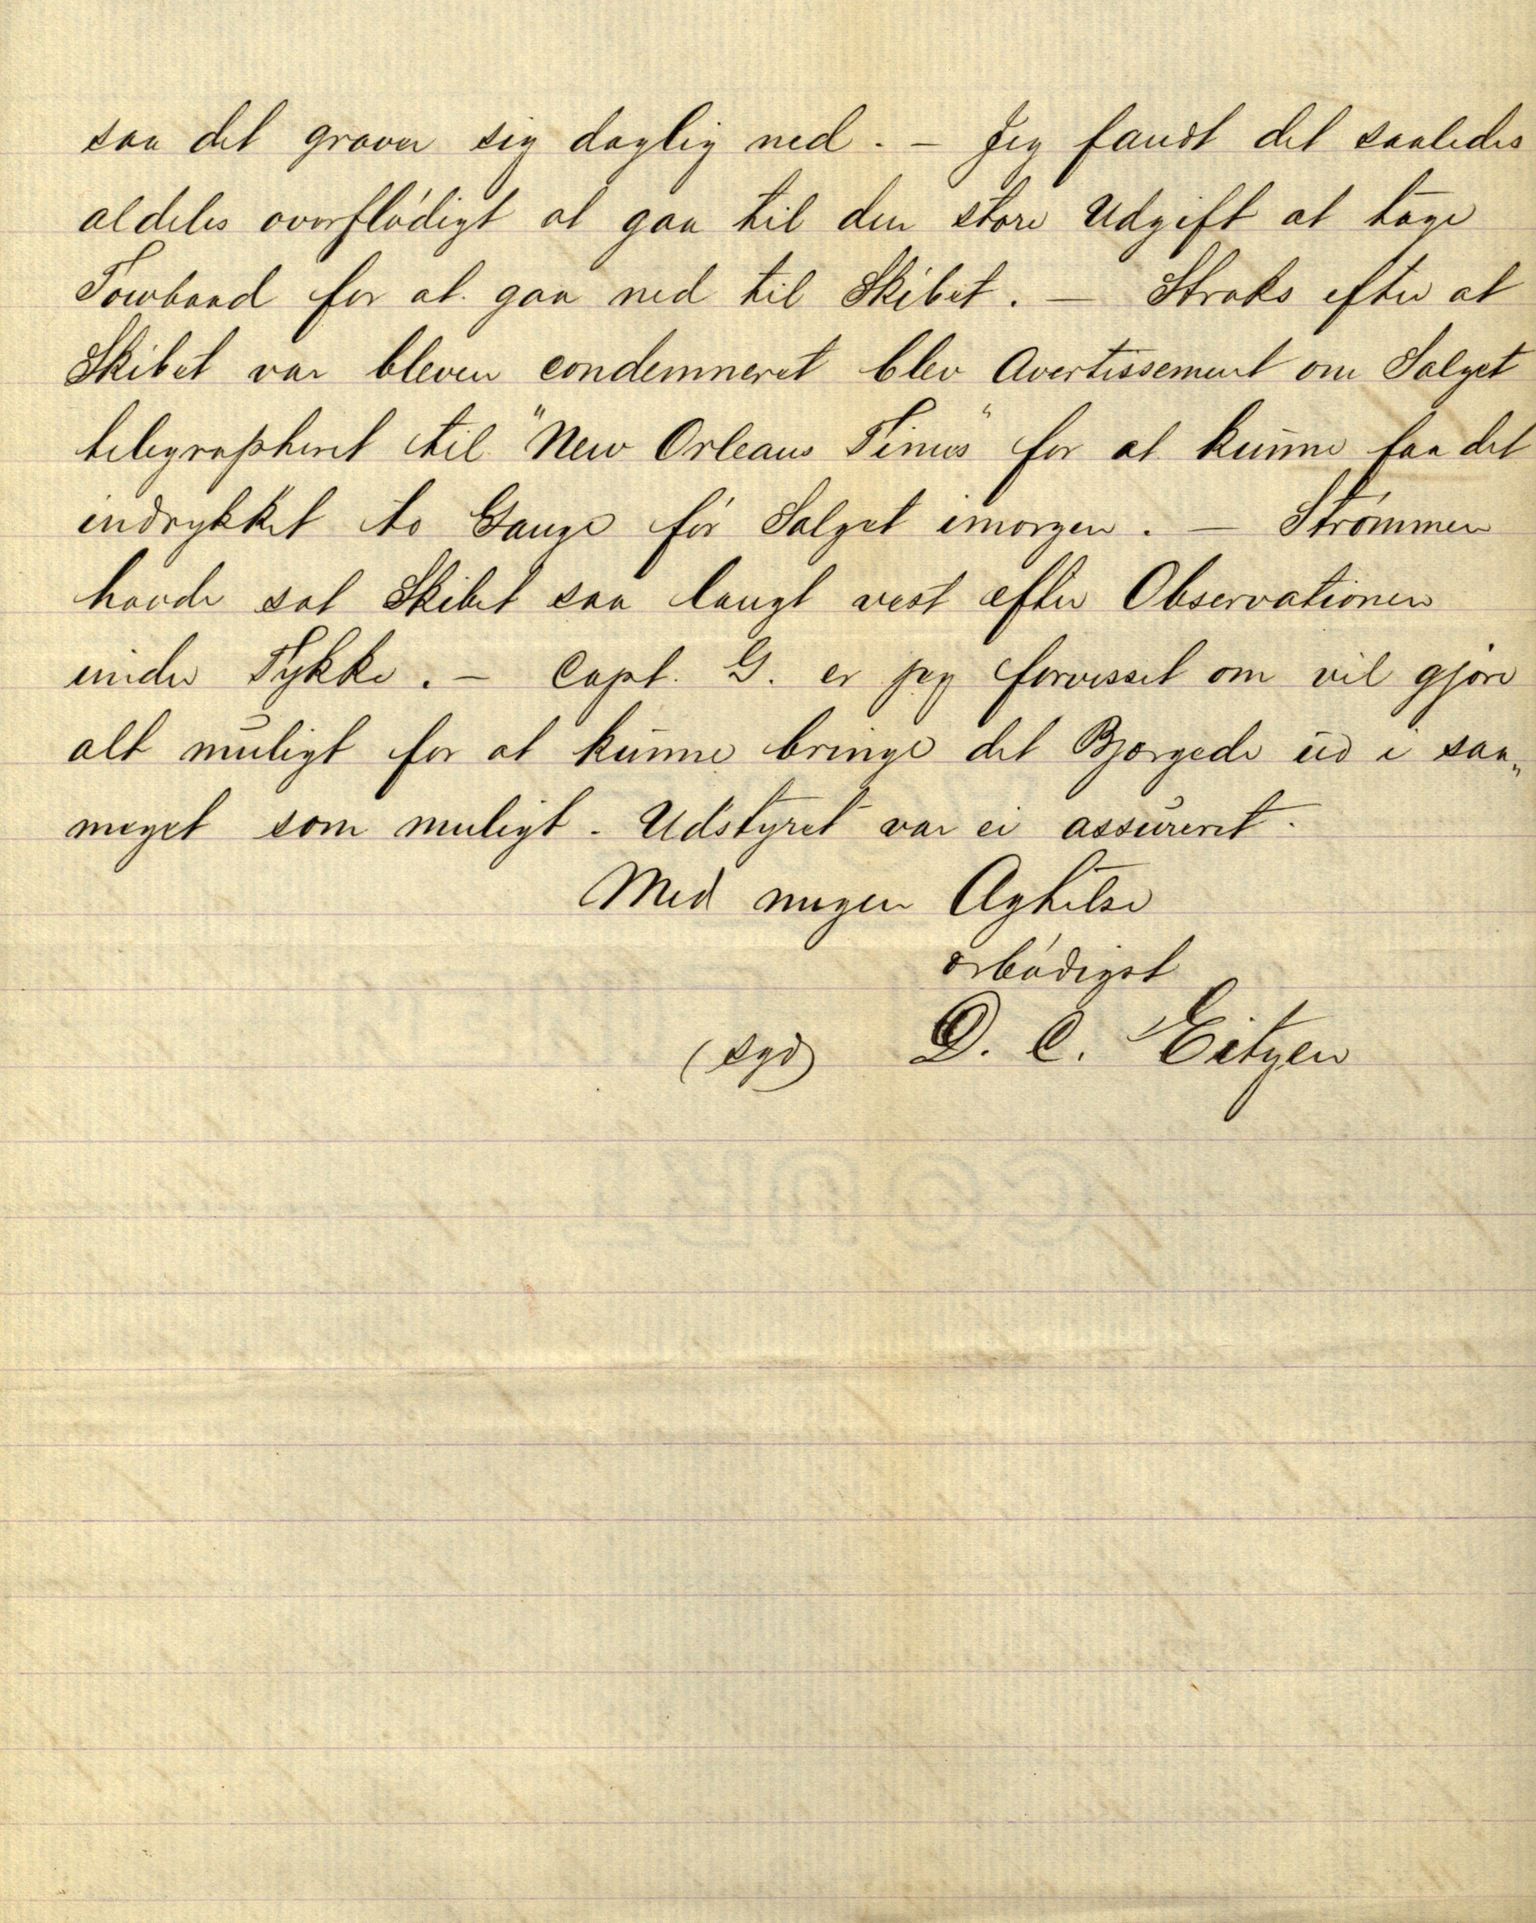 saa det graver sig daglig ned. – Jeg fandt det saaledes
aldeles overflödigt at gaa til den store Udgift at tage
Towbaad for at gaa ned til Skibet. – Straks efter at
Skibet var bleven condemneret blev Avertissement om Salget
telegrapheret til "New Orleans Times" for at kunne faa det
indrykket to Gange för Salget imorgen. – Strömmen
havde sat Skibet saa langt vest efter Observationen
under Tykke. – Capt. G. er jeg forvisset om vil gjöre
alt muligt for at kunne bringe det Bjergede ud i saa„
meget som muligt. Udstyret var ei assureret.
Med megen Agtelse
ærbödigst
(sgd) D. C. Eitzen